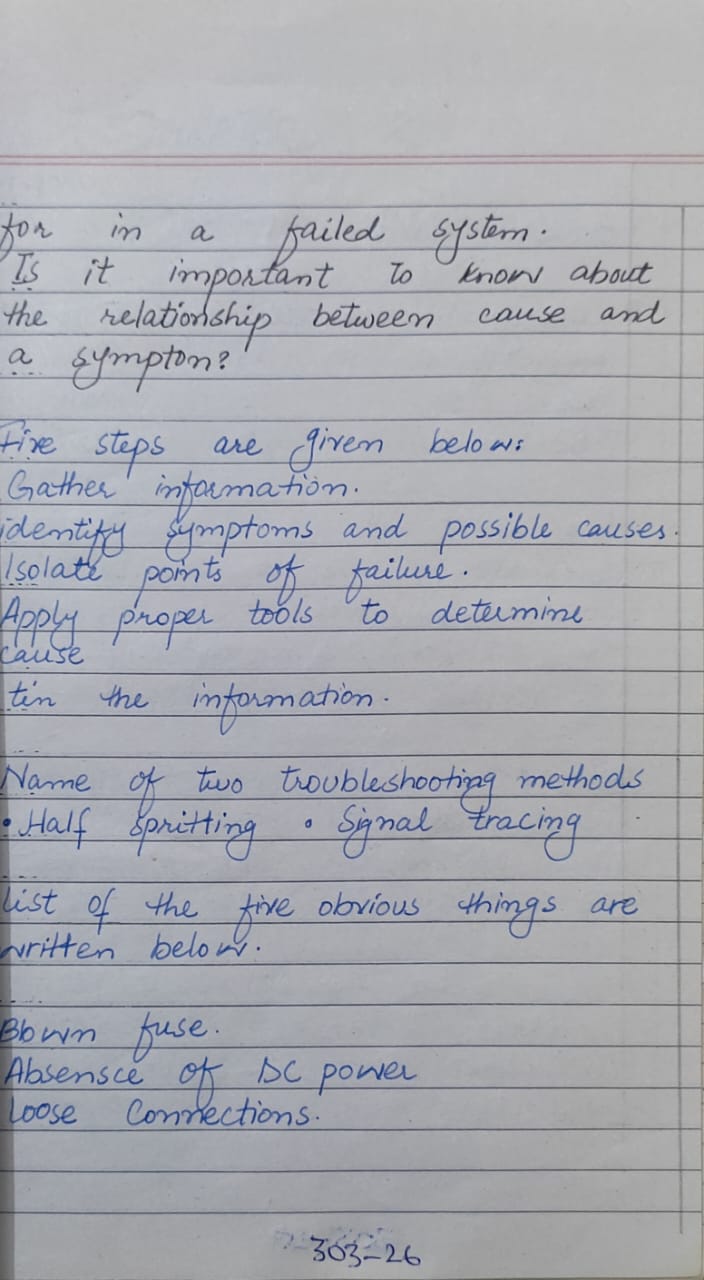 for in a failed system.
Is it important to know about
the relationship between cause and
a sympton?
Five steps are given below:
Gather information.
identify symptoms and possible causes.
Isolate points of failure.
Apply proper tools to determine
cause
tin the information.
Name of two troubleshooting methods
• Half spritting • Signal tracing
List of the five obvious things are
written below.
Blown fuse.
Absensce of DC power
Loose Connections.
303-26